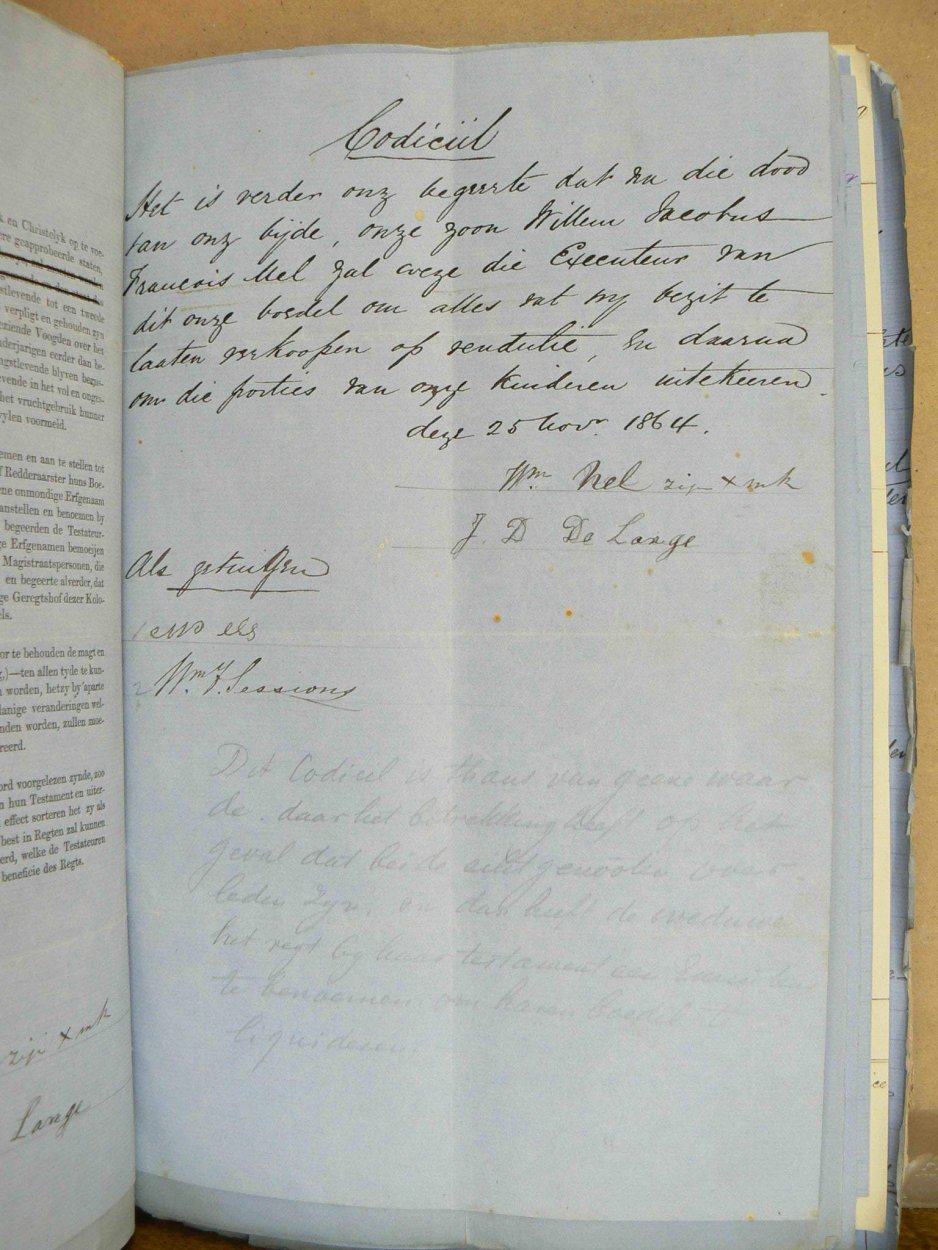 k en Christelyk op te voe-
ere geapprobeerde staten,
gstlevende tot een tweede
verpligt en gehouden zyn
eziende Voogden over het
nderjarigen eerder dan be-
ngstlevende blyven bezit-
evende in het vol en onges-
het vruchtgebruik hunner
ylen voormeld.
emen en aan te stellen tot
f Redderaarster huns Boe-
ene onmondige Erfgenaam
anstellen en benoemen by
begeerden de Testateur-
ge Erfgenamen bemoeijen
Magistraatspersonen, die
en begeerte alverder, dat
ge Geregtshof dezer Kolo-
els.
or te behouden de magt en
g,)—ten allen tyde te kun-
n worden, hetzy by aparte
danige veranderingen wel-
nden worden, zullen moe-
reerd.
ord voorgelezen zynde, zoo
n hun Testament en uiter-
effect sorteren het zy als
best in Regten zal kunnen
erd, welke de Testateuren
beneficie des Regts.
zijn x mk
Lange
Codiciil
Het is verder onz begeerte dat na die dood
van onz bijde, onze zoon Willem Jacobus
Francois Nel zal weze die Executeur van
dit onze boedel om alles dat my bezit te
laaten verkoopen op vendutie, En daarna
om die porties van onze kinderen uitekeeren
deze 25 Novr. 1864.
Wm Nel zijn x mk
J. D De Lange
Als getuigen
1
2 Wm J. Sessions
Dit Codicil is thans van geene waar
de. daar het betrekking heeft op het
geval dat beide echtgenooten over-
leden zyn, en dan heeft de weduwe
het regt by haar testament een
te benoemen om haren boedel te
liquideren.